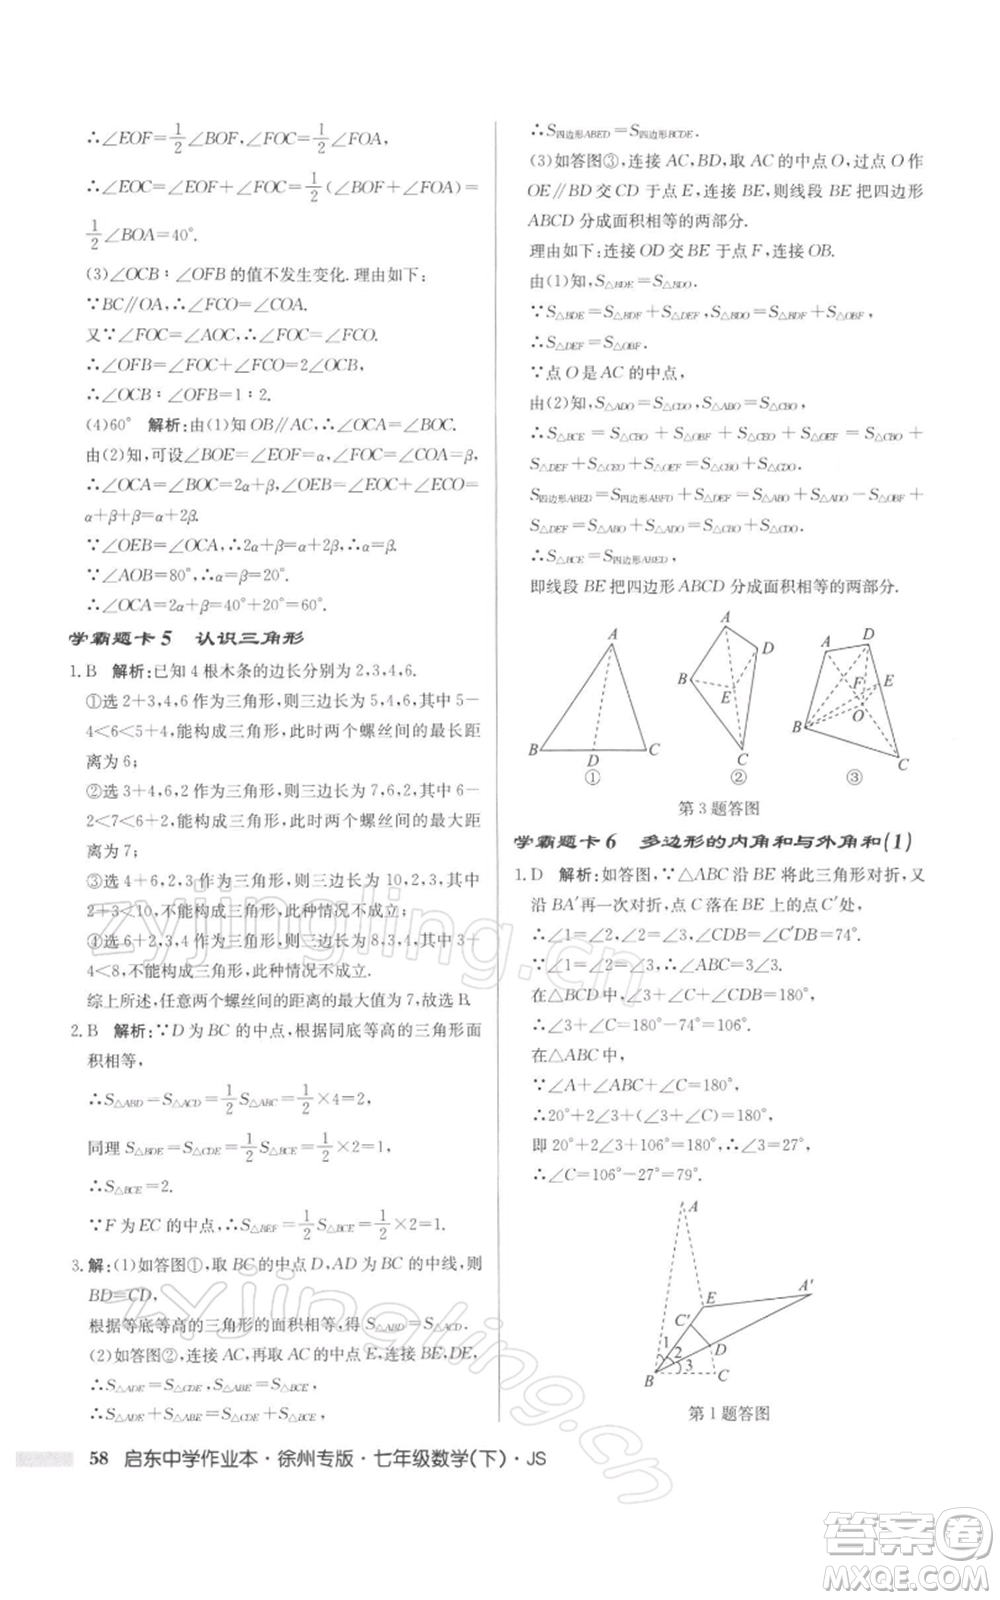 ∴∠EOF=1/2∠BOF,∠FOC=1/2∠FOA,
∴∠EOC=∠EOF+∠FOC=1/2(∠BOF+∠FOA)=
1/2∠BOA=40°.
(3)∠OCB∶∠OFB的值不发生变化.理由如下:
∵BC∥OA,∴∠FCO=∠COA.
又∵∠FOC=∠AOC,∴∠FOC=∠FCO,
∴∠OFB=∠FOC+∠FCO=2∠OCB,
∴∠OCB∶∠OFB=1∶2.
(4)60° 解析:由(1)知OB∥AC,∴∠OCA=∠BOC.
由(2)知,可设∠BOE=∠EOF=α,∠FOC=∠COA=β,
∴∠OCA=∠BOC=2α+β,∠OEB=∠EOC+∠ECO=
α+β+β=α+2β.
∵∠OEB=∠OCA,∴2α+β=α+2β,∴α=β.
∵∠AOB=80°,∴α=β=20°.
∴∠OCA=2α+β=40°+20°=60°.
学霸题卡5 认识三角形
1.B 解析:已知4根木条的边长分别为2,3,4,6.
①选2+3,4,6作为三角形,则三边长为5,4,6,其中5-
4<6<5+4,能构成三角形,此时两个螺丝间的最长距
离为6;
②选3+4,6,2作为三角形,则三边长为7,6,2,其中6-
2<7<6+2,能构成三角形,此时两个螺丝间的最大距
离为7;
③选4+6,2,3作为三角形,则三边长为10,2,3,其中
2+3<10,不能构成三角形,此种情况不成立;
④选6+2,3,4作为三角形,则三边长为8,3,4,其中3+
4<8,不能构成三角形,此种情况不成立.
综上所述,任意两个螺丝间的距离的最大值为7,故选B.
2.B 解析:∵D为BC的中点,根据同底等高的三角形面
积相等,
∴S△ABD=S△ACD=1/2S△ABC=1/2×4=2,
同理S△BDE=S△CDE=1/2S△BCE=1/2×2=1.
∴S△BCE=2.
∵F为EC的中点,∴S△BEF=1/2S△BCE=1/2×2=1.
3.解:(1)如答图①,取BC的中点D,AD为BC的中线,则
BD=CD,
根据等底等高的三角形的面积相等,得S△ABD=S△ACD.
(2)如答图②,连接AC,再取AC的中点E,连接BE,DE,
∴S△ADE=S△CDE,S△ABE=S△BCE,
∴S△ADE+S△ABE=S△CDE+S△BCE,
58 启东中学作业本·徐州专版·七年级数学(下)·JS
∴S四边形ABED=S四边形BCDE.
(3)如答图③,连接AC,BD,取AC的中点O,过点O作
OE∥BD交CD于点E,连接BE,则线段BE把四边形
ABCD分成面积相等的两部分.
理由如下:连接OD交BE于点F,连接OB.
由(1)知,S△BDE=S△BDO.
∵S△BDE=S△BDF+S△DEF,S△BDO=S△BDF+S△OBF,
∴S△DEF=S△OBF.
∵点O是AC的中点,
由(2)知,S△ADO=S△CDO,S△ABO=S△CBO,
∴S△BCE=S△CBO+S△OBF+S△CEO+S△OEF=S△CBO+
S△DEF+S△CEO+S△OEF=S△CBO+S△CDO.
S四边形ABED=S四边形ABFD+S△DEF=S△ABO+S△ADO-S△OBF+
S△DEF=S△ABO+S△ADO=S△CBO+S△CDO,
∴S△BCE=S四边形ABED,
即线段BE把四边形ABCD分成面积相等的两部分.
A B D C ①
A D B E C ②
A D F E B O C ③
第3题答图
学霸题卡6 多边形的内角和与外角和(1)
1.D 解析:如答图,∵△ABC沿BE将此三角形对折,又
沿BA′再一次对折,点C落在BE上的点C′处,
∴∠1=∠2,∠2=∠3,∠CDB=∠C′DB=74°.
∴∠1=∠2=∠3,∴∠ABC=3∠3.
在△BCD中,∠3+∠C+∠CDB=180°,
∴∠3+∠C=180°-74°=106°.
在△ABC中,
∵∠A+∠ABC+∠C=180°,
∴20°+2∠3+(∠3+∠C)=180°,
即20°+2∠3+106°=180°,∴∠3=27°.
∴∠C=106°-27°=79°.
A E A′ C′ D 1 2 3 B C
第1题答图
zyjingling.cn
zyjingling.cn
答案卷
MXQE.COM